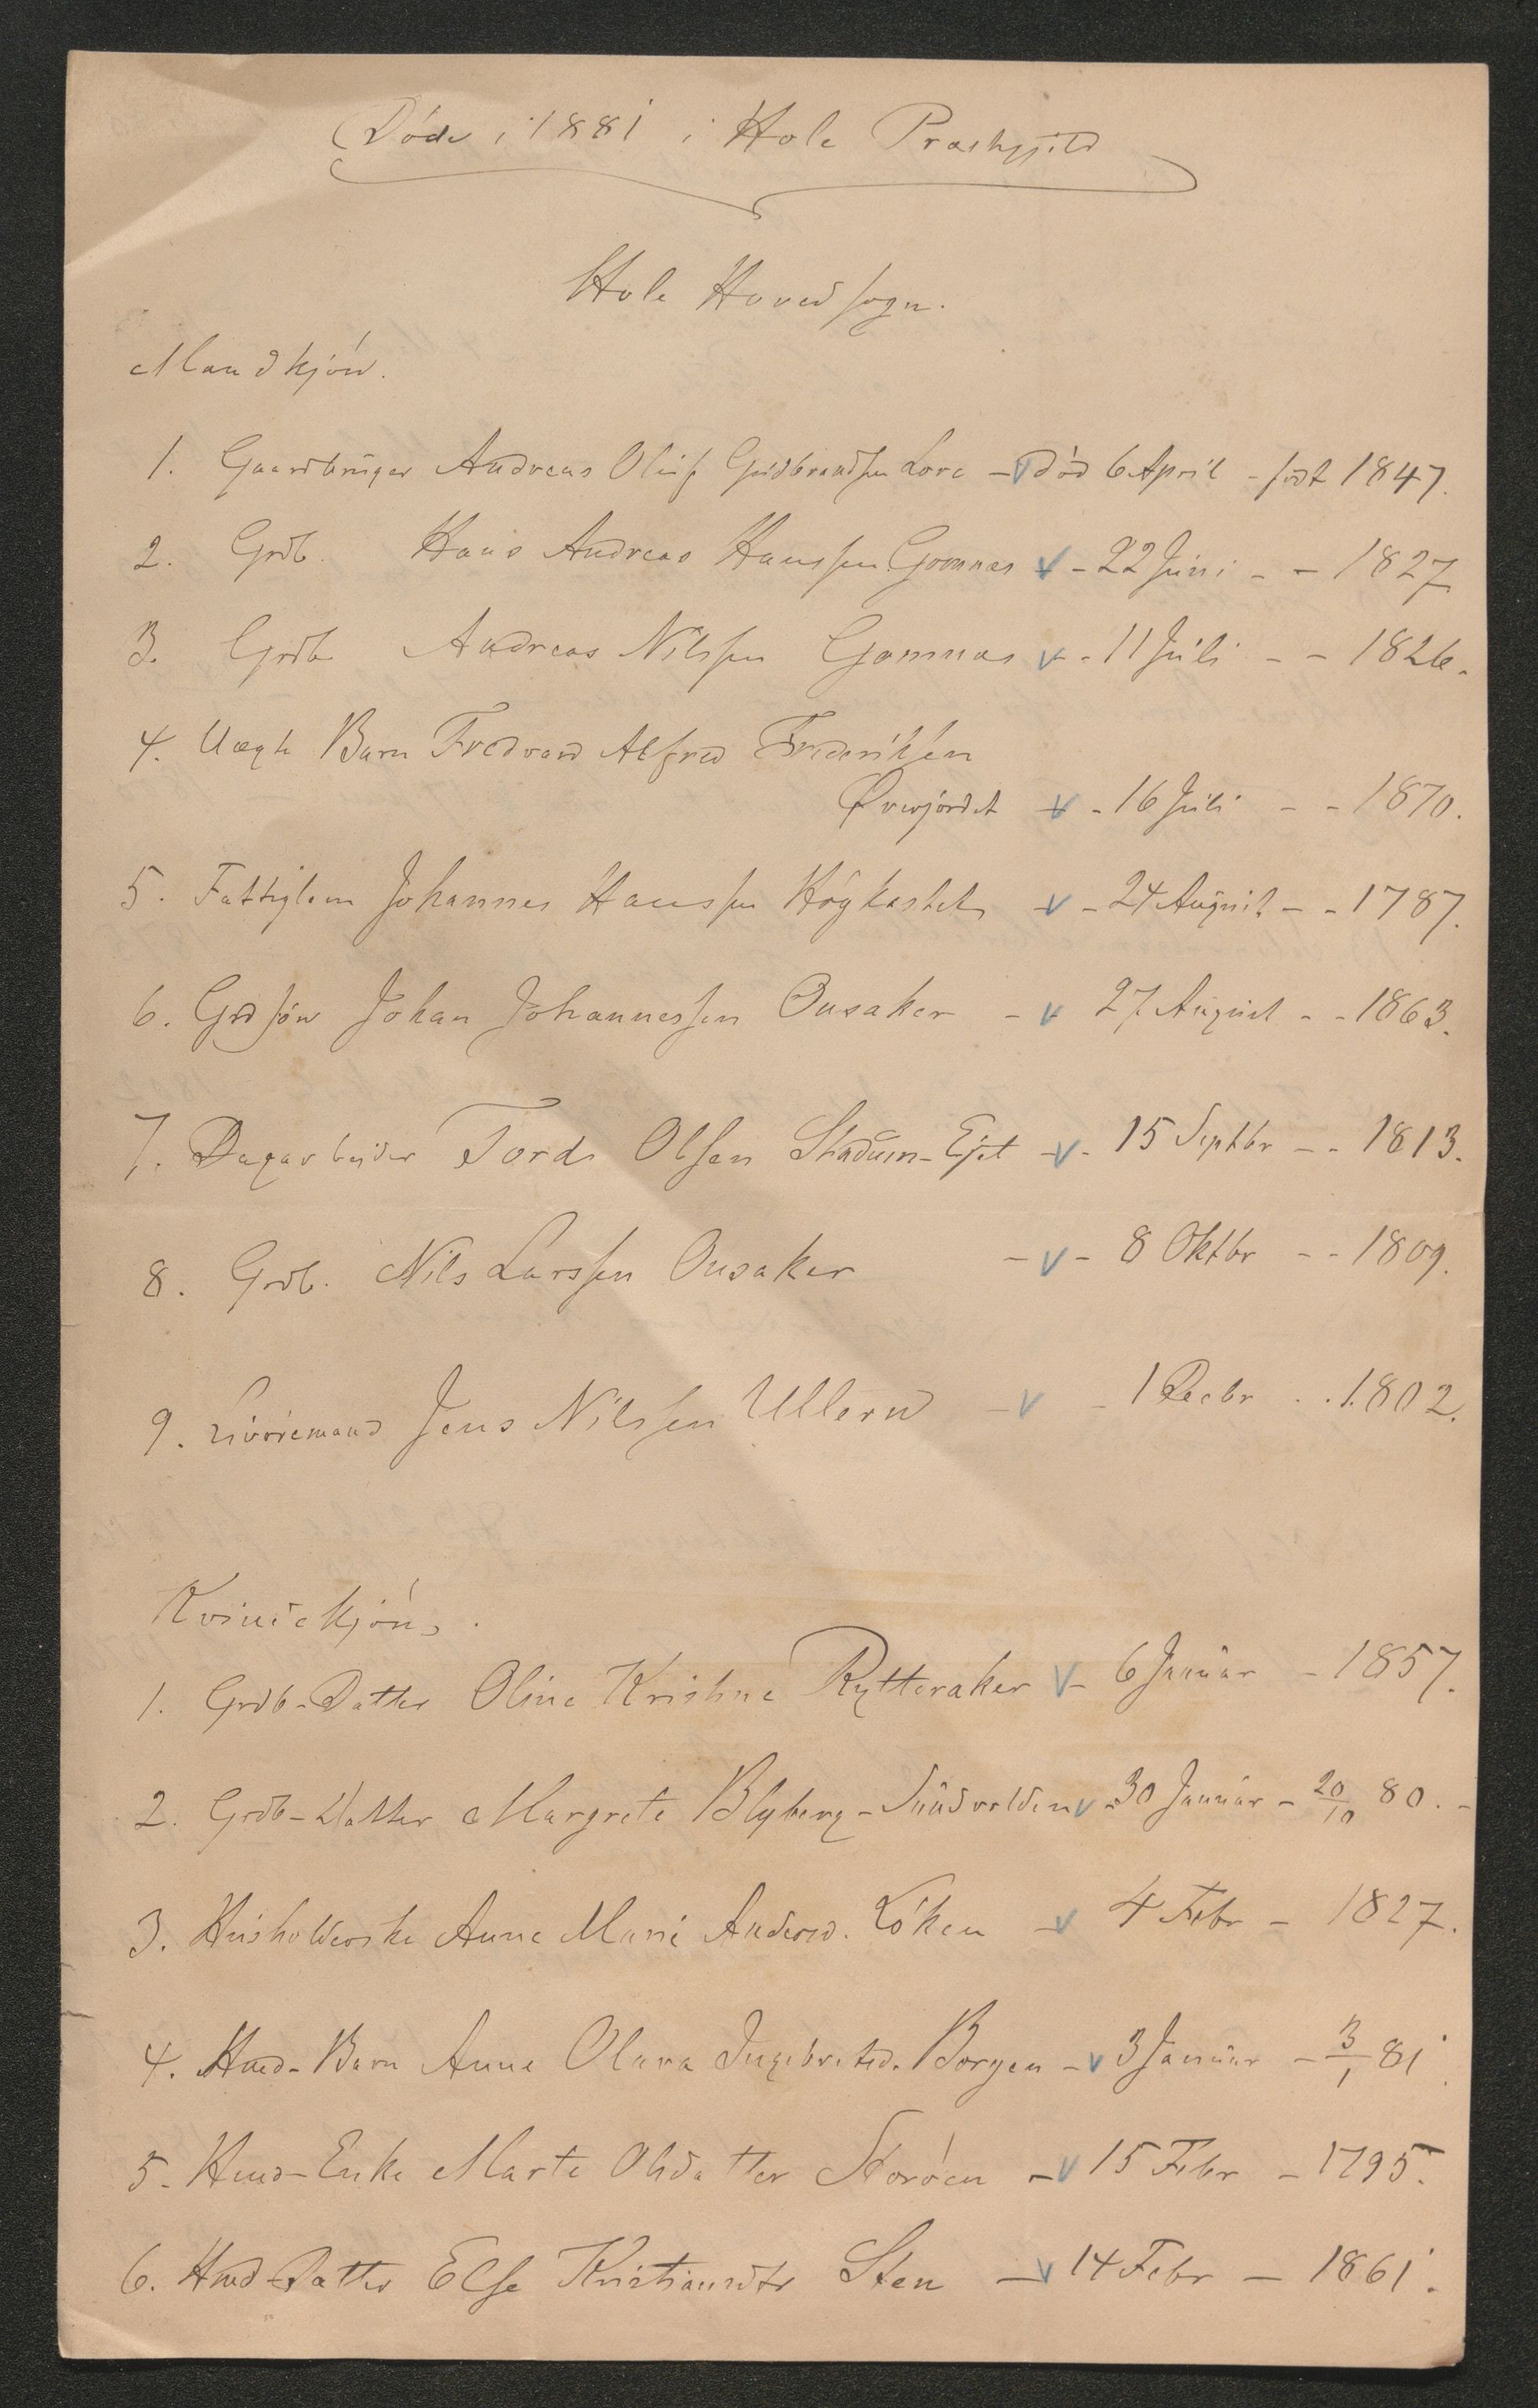 Døde i 1881 i Hole Præstegjeld
Hole Hovedsogn.
Mandkjøn.
1. Gaardbruger Andreas Oluf Guldbrandsen Lore - død 6 April - født 1847.
2. Grdb. Hans Andreas Hanssen Gomnæs - 22 Juni - - 1827
3. Grdb Andreas Nilssen Gomnæs - 11 Juli - - 1826.
4. Uægte Barn Fredvard Alfred Frederiksen
Øverjordet - 16 Juli - - 1870.
5. Fattiglem Johannes Hanssen Høgkastet - 24 August - - 1787.
6. Grdsøn Johan Johannessen Onsaker - 27 August - - 1863.
7. Dagarbeider Tord Olsen Stadum-Eiet - 15 Septbr - - 1813.
8. Grdb. Nils Larssen Onsaker - - 8 Oktbr - - 1809.
9. Livøremand Jens Nilssen Ullern - - 1 Decbr - - 1802.
Kvindekjøn.
1. Grdb-Datter Oline Kristine Rytteraker - 6 Januar - 1857.
2. Grdb-Datter Margrete Blyberg-Sundvolden - 30 Januar - 20/10 80. -
3. Husholderske Anne Marie Andersd. Løken - 4 Febr - 1827.
4. Hmd-Barn Anne Olava Ingebretsd. Borgen - 3 Januar - 3/1 81.
5. Hmd-Enke Marte Olsdatter Storøen - 15 Febr - 1795.
6. Hmd-Datter Else Kristiansdtr Sten - 14 Febr - 1861.